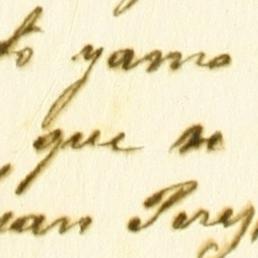 to yamo
que se
uan Perey